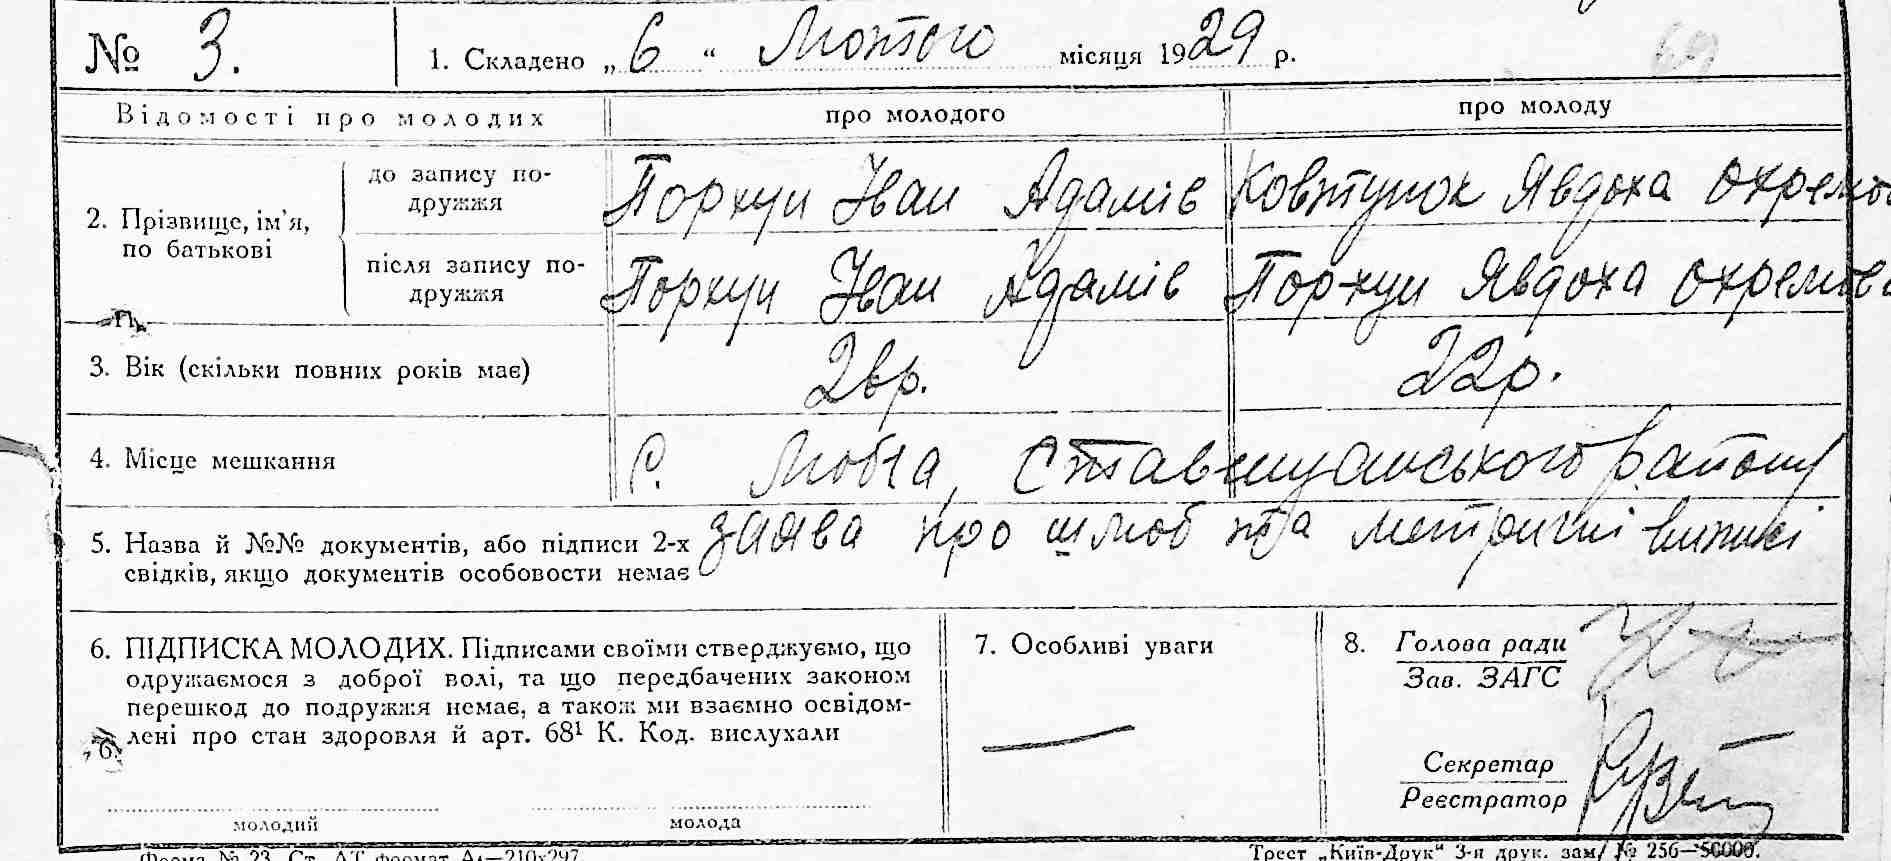 № 3. 1. Складено „6“ Лютого місяця 1929 р.
Відомості про молодих про молодого про молоду
2. Прізвище, ім'я, по батькові
до запису подружжя Порхун Іван Адамів Ковтунок Явдоха Охремов
після запису подружжя Порхун Іван Адамів Порхун Явдоха Охремов
3. Вік (скільки повних років має) р. 22р.
4. Місце мешкання С. Люб'я, Ставищанського району
5. Назва й №№ документів, або підписи 2-х заява про шлюб та метричні виписі
свідків, якщо документів особовости немає
6. ПІДПИСКА МОЛОДИХ. Підписами своїми стверджуємо, що
одружаємося з доброї волі, та що передбачених законом
перешкод до подружжя немає, а також ми взаємно освідом-
лені про стан здоровля й арт. 68¹ К. Код. вислухали
молодий молода
7. Особливі уваги
—
8. Голова ради
Зав. ЗАГС
Секретар
Реєстратор
Форма № 23. Ст. АТ формат А₄—210х297 Трест „Київ-Друк“ 3-я друк. зам. № 256—50000.